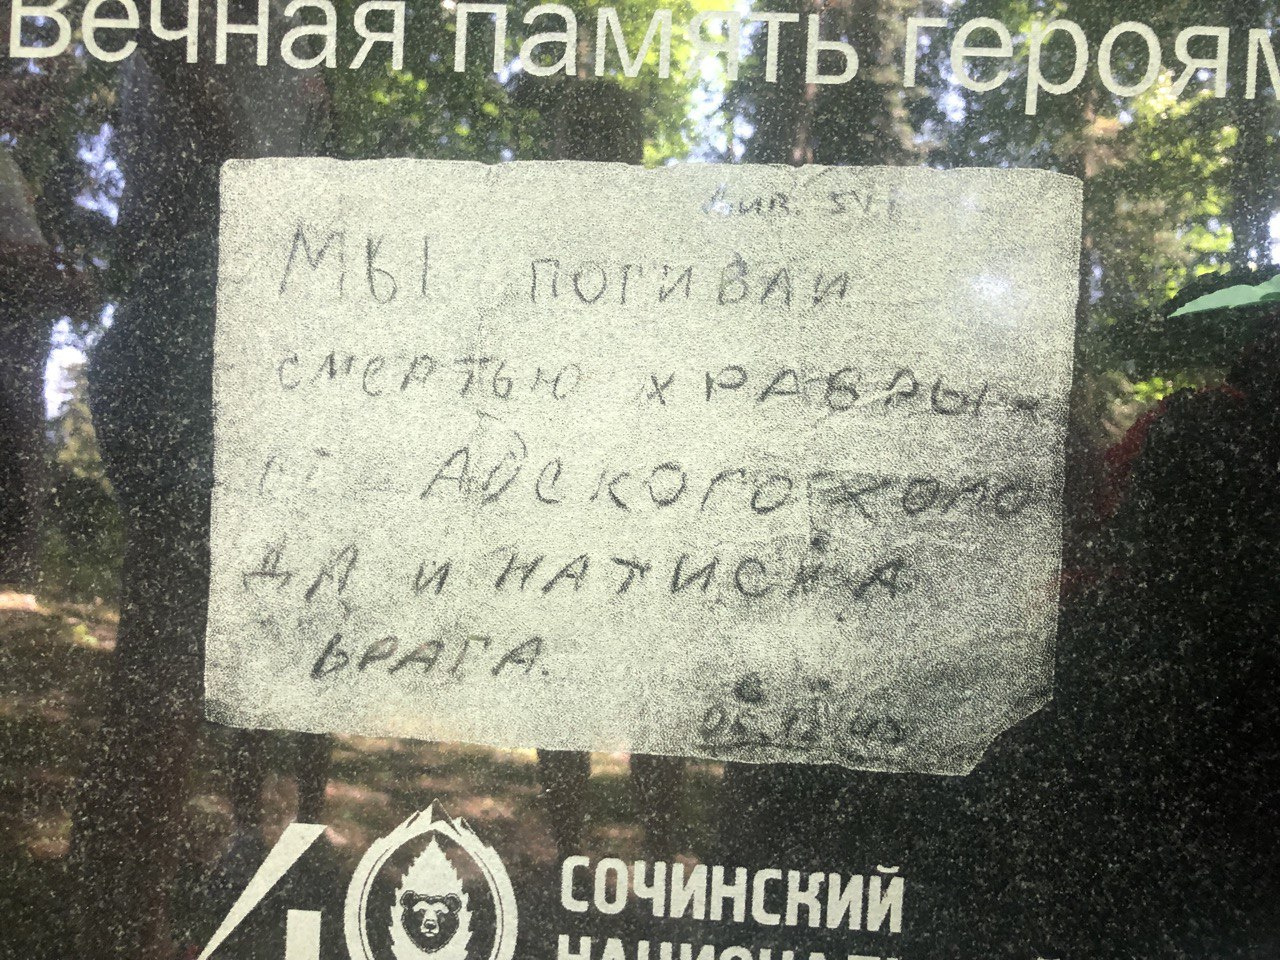 Вечная память героям
Мы погивали
смертью хравры-х
от Адского холо
да и натиска
врага.
СОЧИНСКИЙ